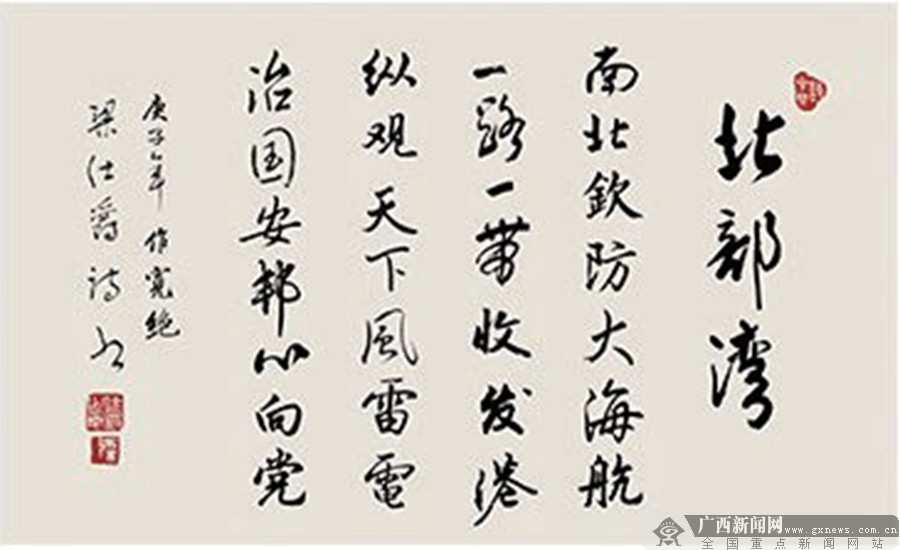 北部湾
南北欽防大海航
一路一带收发港
纵观天下風雷電
治国安邦心向党
庚子年 作寬绝
梁仕爵诗书
广西新闻网
www.gxnews.com.cn
全国重点新闻网站